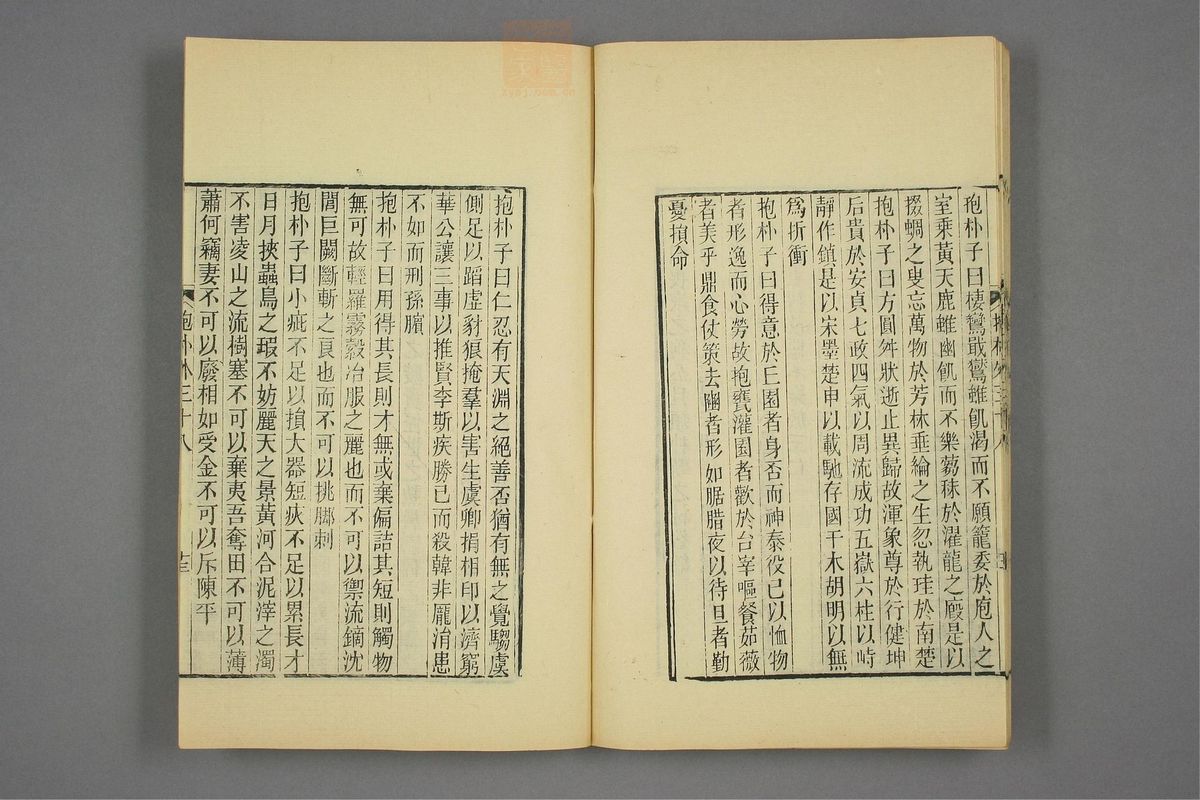 抱朴子曰棲鸞戢鷟雖飢渴而不願籠委於庖人之
室乘黃天鹿雖幽飢而不樂芻秣於濯龍之廄是以
掇蜩之叟忘萬物於芳林垂綸之生忽執珪於南楚
抱朴子曰方圓舛狀逝止異歸故渾象尊於行健坤
后貴於安貞七政四氣以周流成功五嶽六柱以峙
靜作鎮是以宋墨楚申以載馳存國干木胡明以無
爲折衝
抱朴子曰得意於丘園者身否而神泰役己以恤物
者形逸而心勞故抱甕灌園者歡於台宰嘔餐茹薇
者美乎鼎食仗策去豳者形如腒腊夜以待旦者勤
憂損命
抱朴子曰仁忍有天淵之絕善否猶有無之覺騶虞
側足以蹈虛豺狼掩羣以害生虞卿捐相印以濟窮
華公讓三事以推賢李斯疾勝己而殺韓非龐涓患
不如而刑孫臏
抱朴子曰用得其長則才無或棄偏詰其短則觸物
無可故輕羅霧縠冶服之麗也而不可以禦流鏑沈
閭巨闕斷斬之良也而不可以挑脚刺
抱朴子曰小疵不足以損大器短疢不足以累長才
日月挾蟲鳥之瑕不妨麗天之景黃河合泥滓之濁
不害凌山之流樹塞不可以棄夷吾奪田不可以薄
蕭何竊妻不可以廢相如受金不可以斥陳平
抱朴外三十八
十三